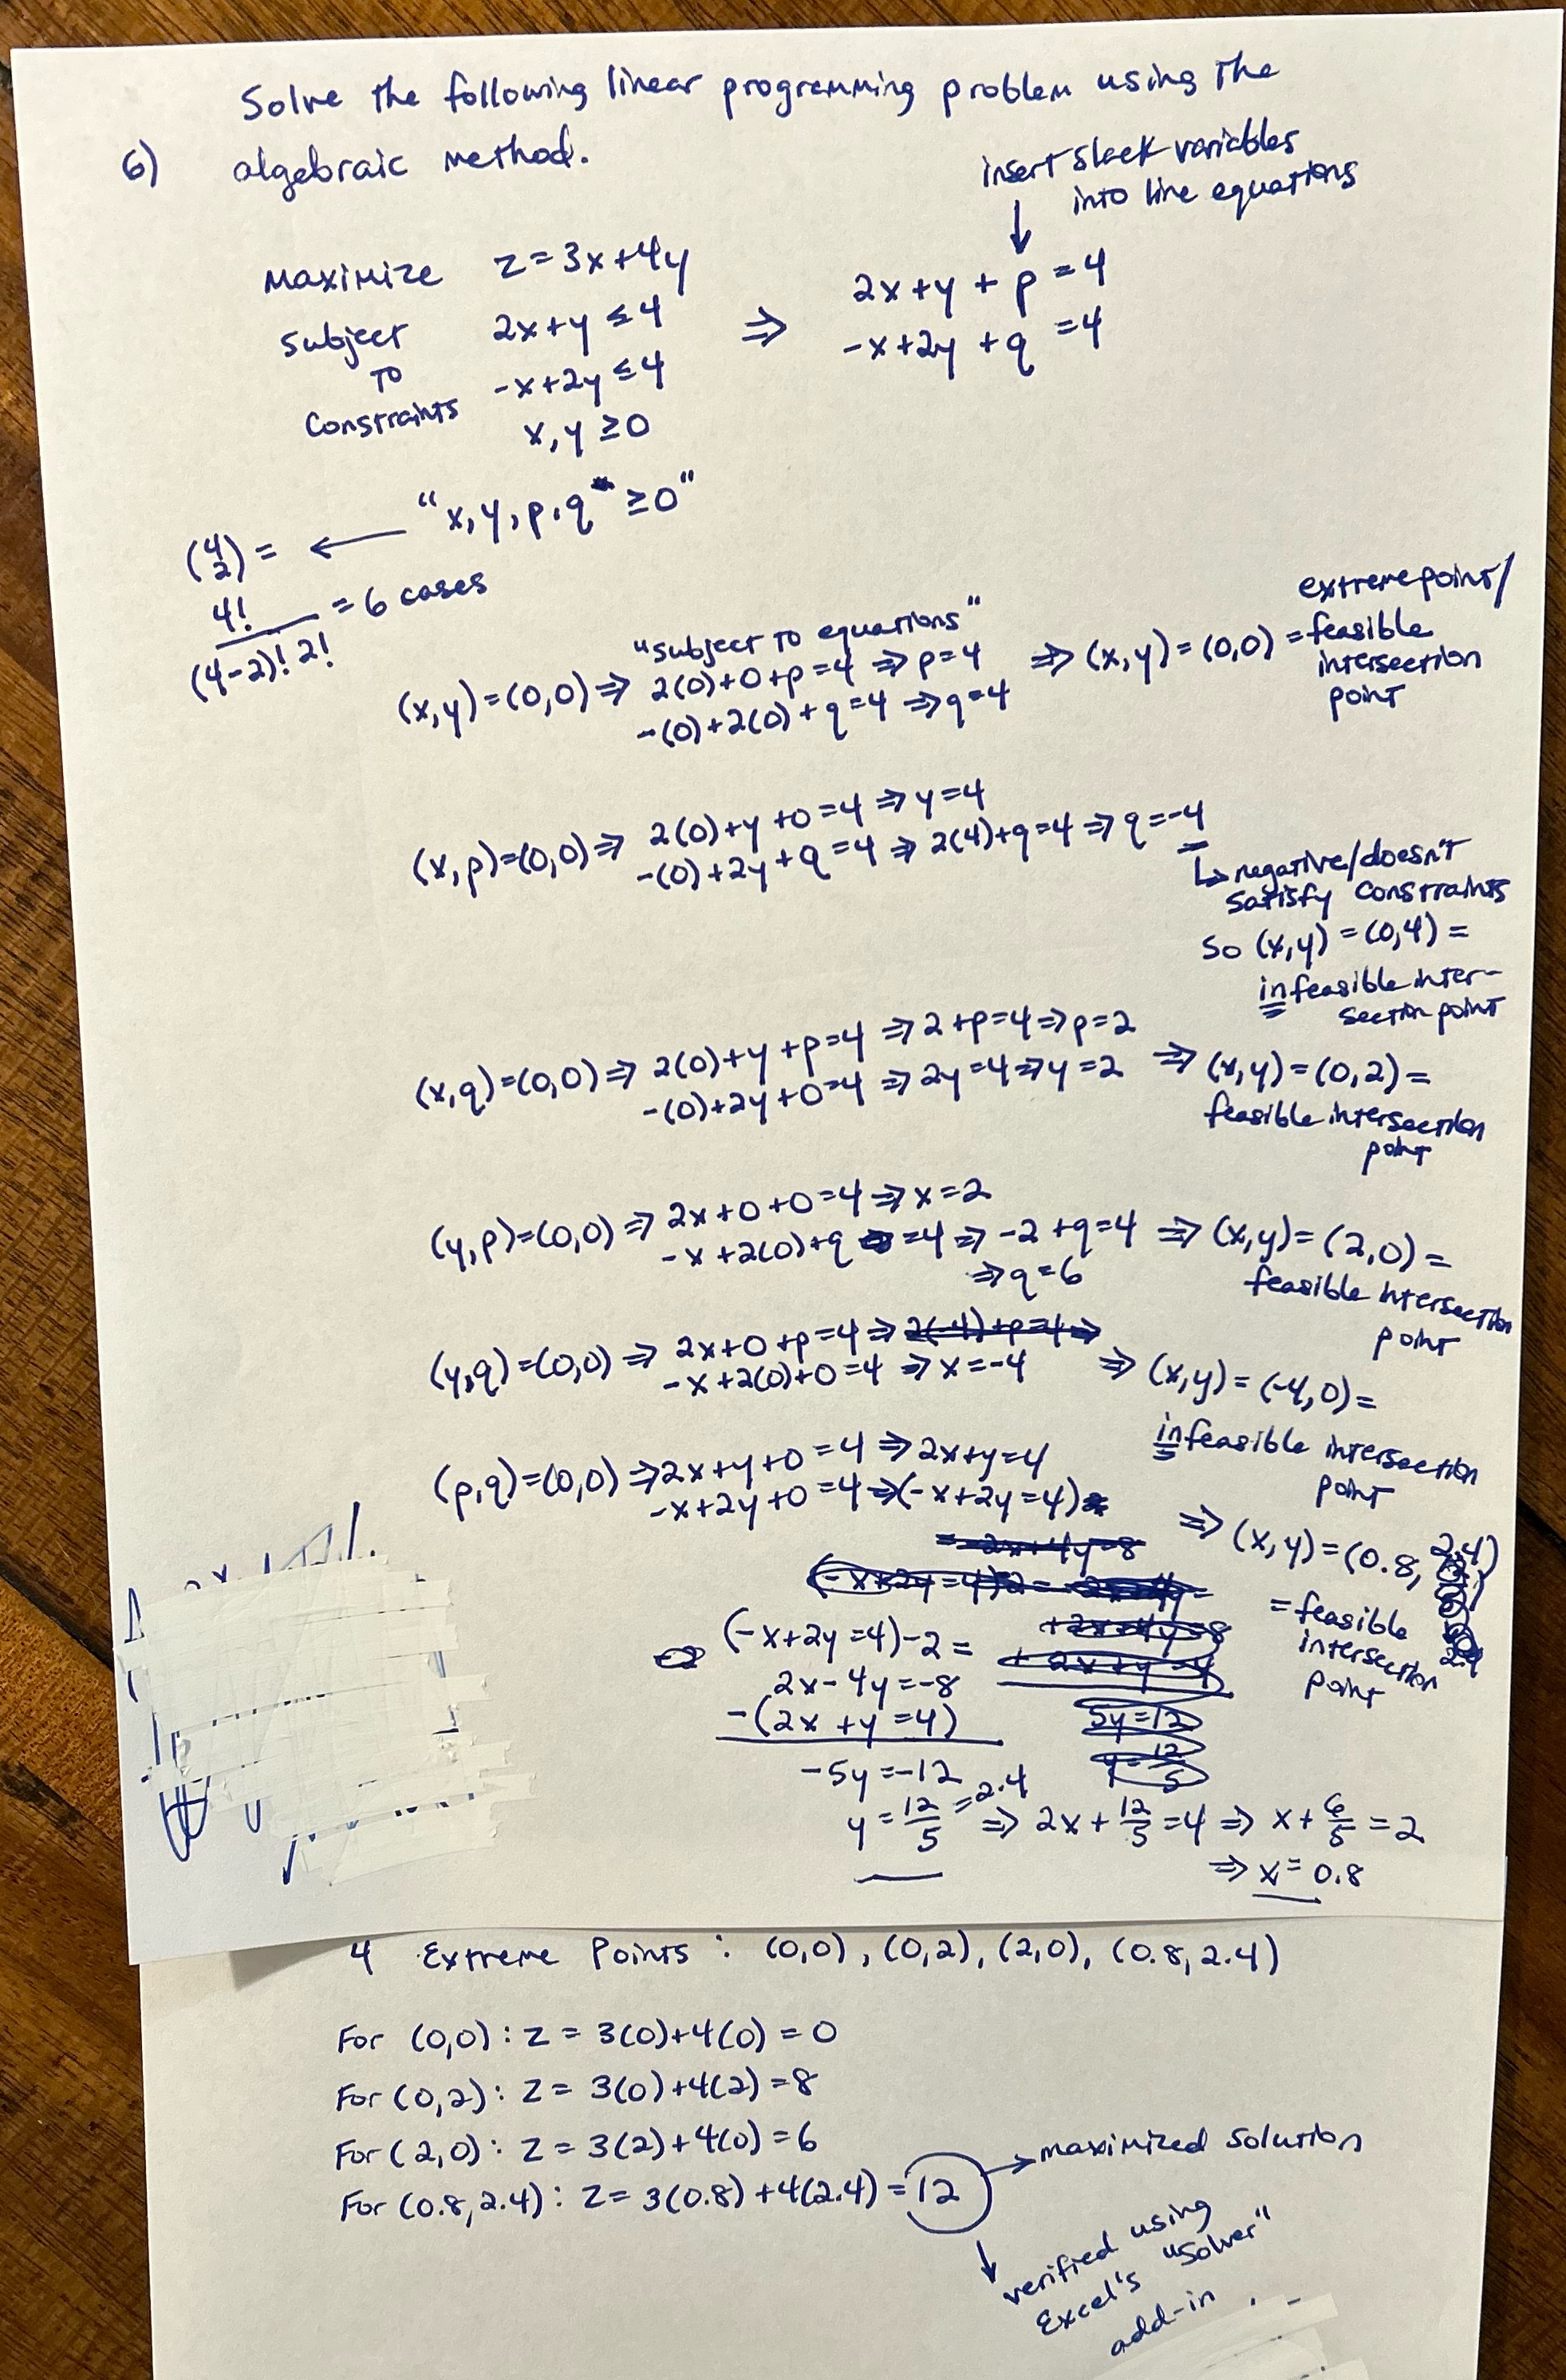 Solve the following linear programming problem using the
6) algebraic method.
insert slack variables
into line equations
↓
Maximize z=3x+4y
Subject 2x+y ≤4 ⇒ 2x+y + p =4
to -x+2y ≤4 -x+2y +q =4
Constraints x,y ≥0
(4 2) = ← "x,y,p,q ≥0"
4!/(4-2)! 2! = 6 cases
"subject to equations"
(x,y)=(0,0)⇒ 2(0)+0+p=4 ⇒p=4 ⇒(x,y)=(0,0) = extreme point/
-(0)+2(0)+q=4 ⇒q=4 feasible
intersection
point
(x,p)=(0,0)⇒ 2(0)+y+0=4⇒y=4
-(0)+2y+q=4⇒2(4)+q=4⇒q=-4
↳negative/doesn't
satisfy constraints
So (x,y)=(0,4)=
infeasible inter-
section point
(x,q)=(0,0)⇒ 2(0)+y+p=4⇒2+p=4⇒p=2
-(0)+2y+0=4⇒2y=4⇒y=2 ⇒(x,y)=(0,2)=
feasible intersection
point
(y,p)=(0,0)⇒2x+0+0=4⇒x=2
-x+2(0)+q =4⇒-2+q=4 ⇒(x,y)=(2,0)=
⇒q=6 feasible intersection
point
(y,q)=(0,0)⇒ 2x+0+p=4⇒2(-4)+p=4⇒
-x+2(0)+0=4 ⇒x=-4 ⇒(x,y)=(-4,0)=
infeasible intersection
point
(p,q)=(0,0)⇒2x+y+0=4⇒2x+y=4
-x+2y+0=4⇒(-x+2y=4)
⇒(x,y)=(0.8, 2.4)
= feasible
intersection
point
(-x+2y=4)-2=
2x-4y=-8
-(2x+y=4)
-5y=-12
y=12/5=2.4 ⇒ 2x+12/5=4⇒ x+6/5=2
⇒x=0.8
4 Extreme Points: (0,0), (0,2), (2,0), (0.8,2.4)
For (0,0): z = 3(0)+4(0) = 0
For (0,2): z = 3(0)+4(2)=8
For (2,0): z = 3(2)+4(0)=6
For (0.8,2.4): z= 3(0.8)+4(2.4)=12 →maximized solution
↓ verified using
Excel's "Solver"
add-in